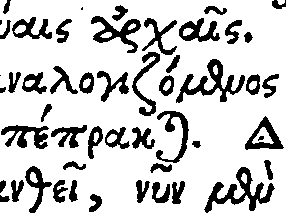 υαις ἀρχαῖς.
ναλογιζόμενος
πέπρακται. Δ
νθεῖ, νῦν μὲν